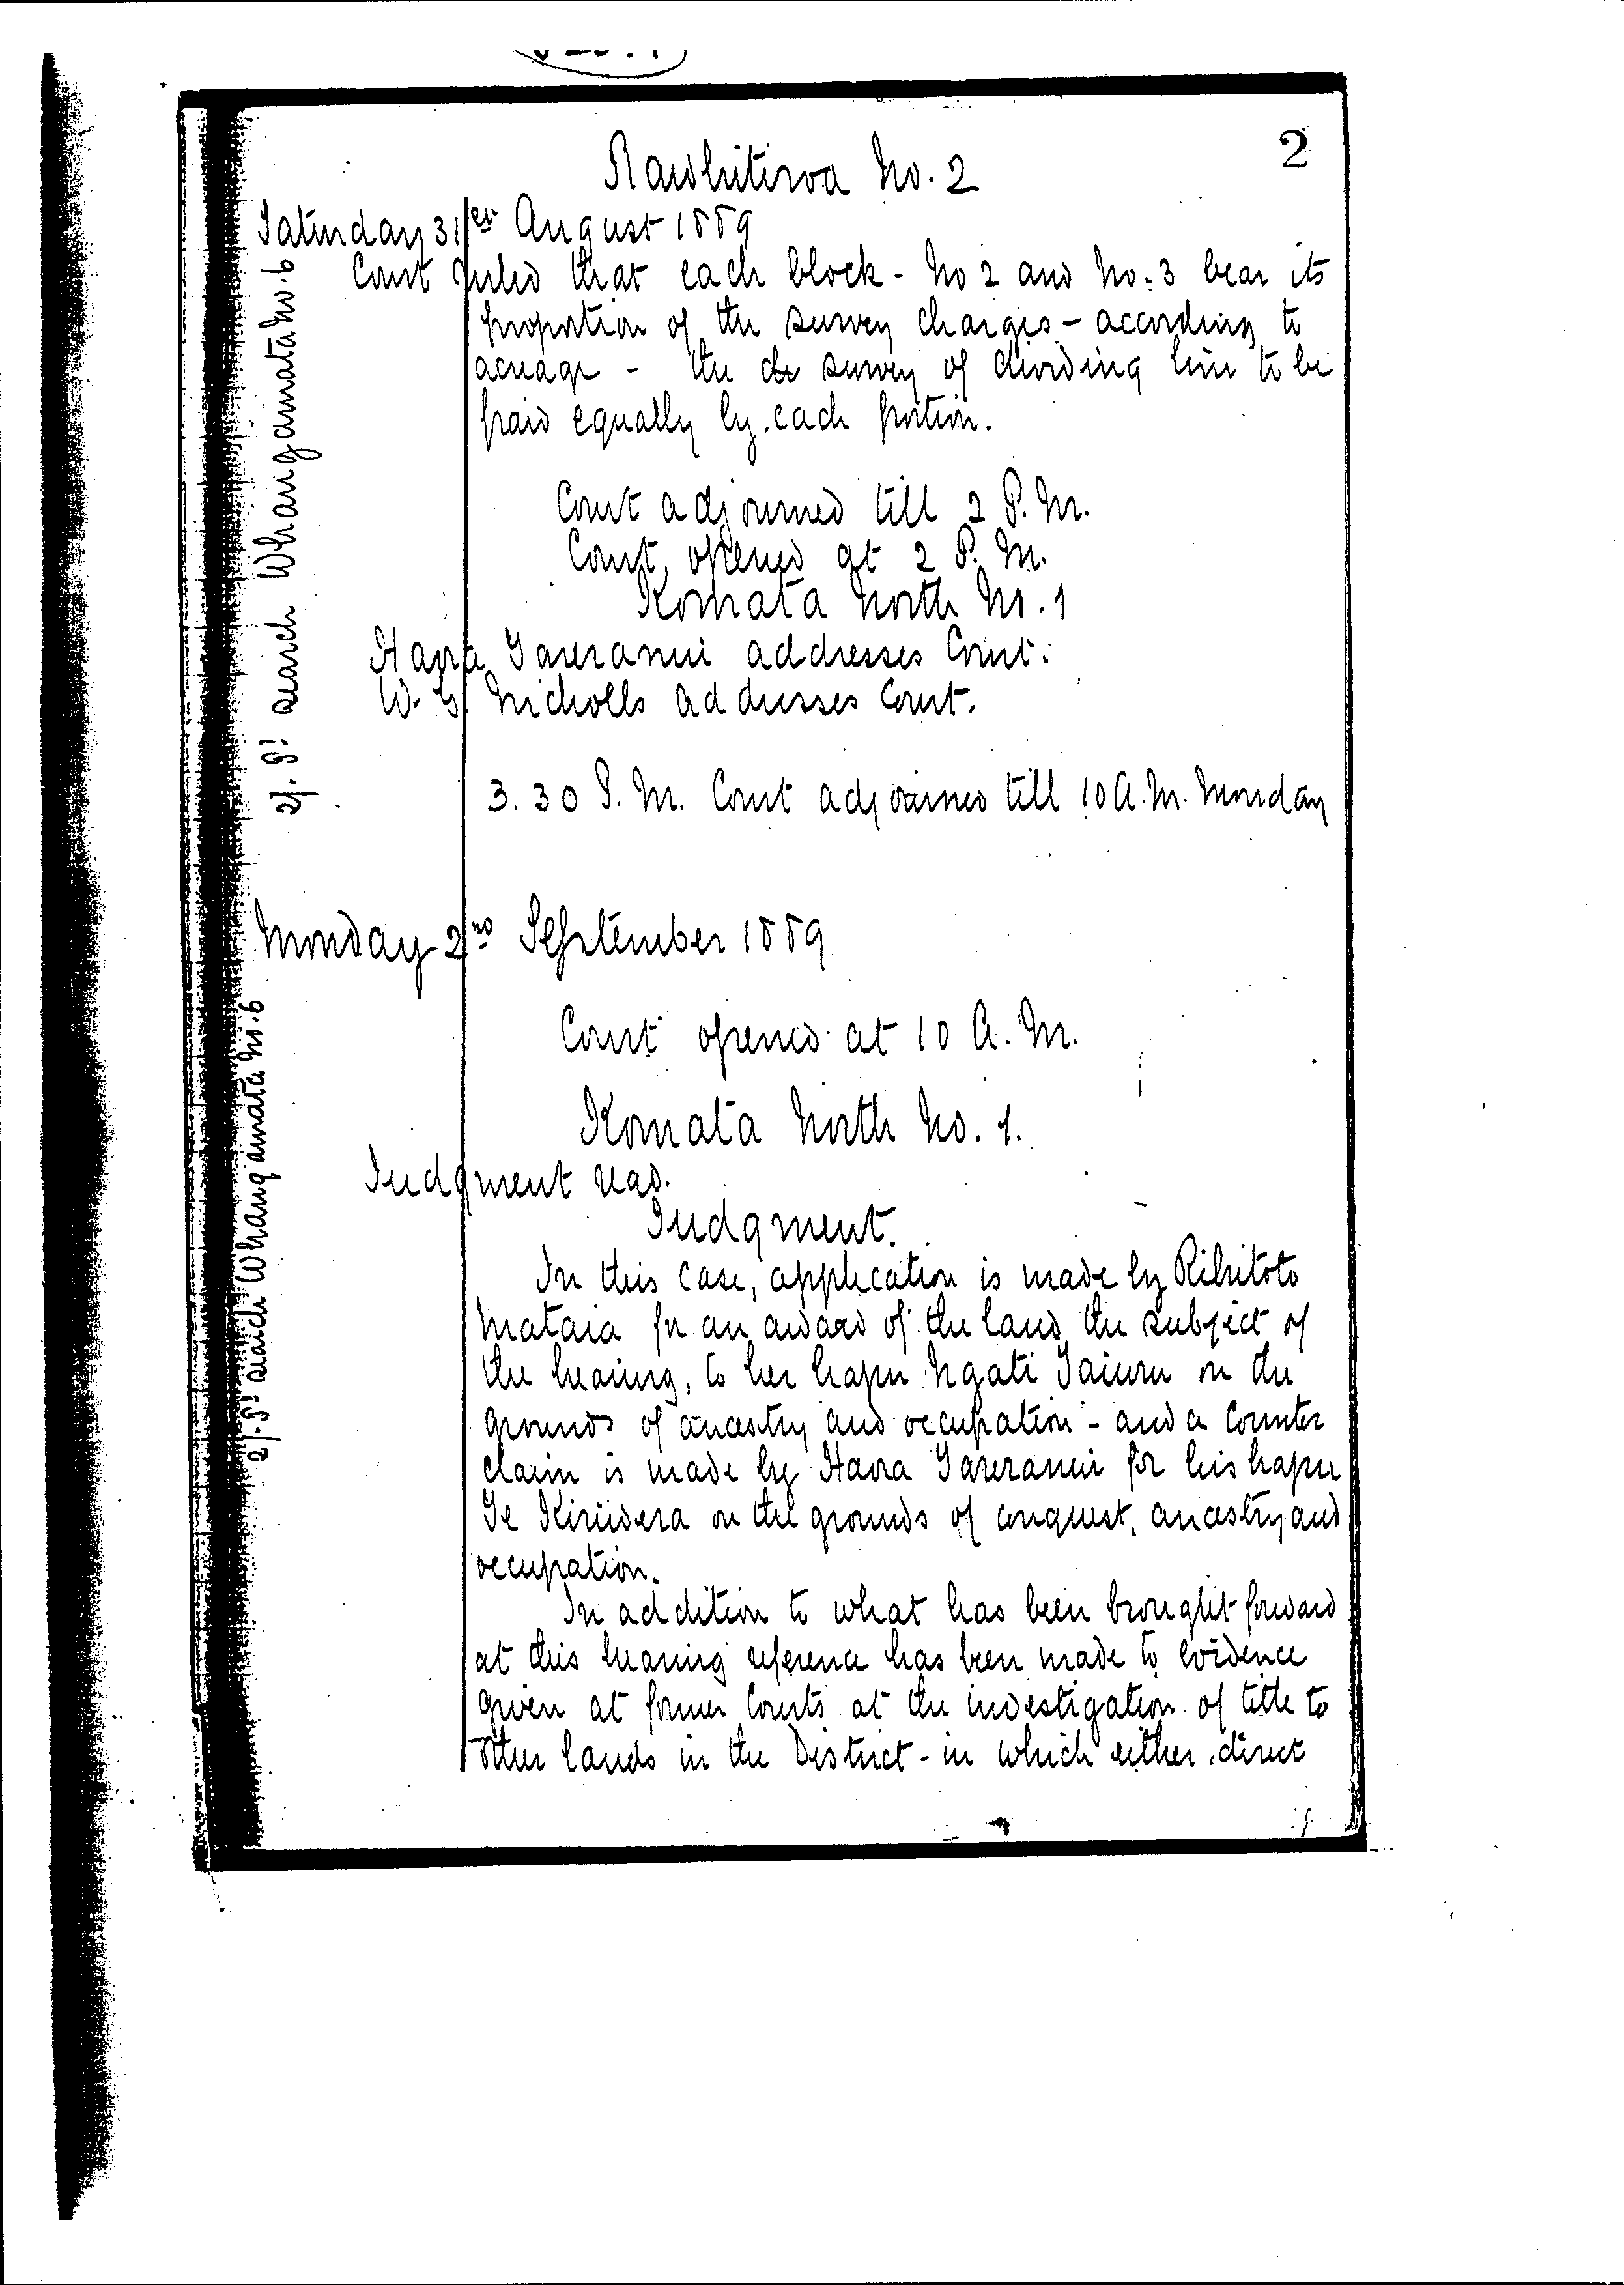 2
Rawhitiroa No. 2
Saturday 31st August 1889
Court ruled that each block - No 2 and No. 3 bear its
proportion of the survey charges - according to
acreage - the survey of dividing line to be
paid equally by each portion.
Court adjourned till 2 P.M.
Court opened at 2 P.M.
Komata North No. 1
Haora Tareranui addresses Court.
W. G. Nicholls addresses Court.
3.30 P.M. Court adjourned till 10 A.M. Monday
2/. Pd search Whangamata No. 6
Monday 2nd September 1889
Court opened at 10 A.M.
Komata North No. 1.
Judgment read.
Judgment.
In this case, application is made by Rihitoto
Mataia for an award of the land the subject of
the hearing, to her hapu Ngati Taiuru on the
grounds of ancestry and occupation - and a counter
claim is made by Haora Tareranui for his hapu
Te Kiriwera on the grounds of conquest, ancestry and
occupation.
In addition to what has been brought forward
at this hearing reference has been made to evidence
given at former Courts at the investigation of title to
other lands in the District - in which either direct
2/. Pd search Whangamata No. 6